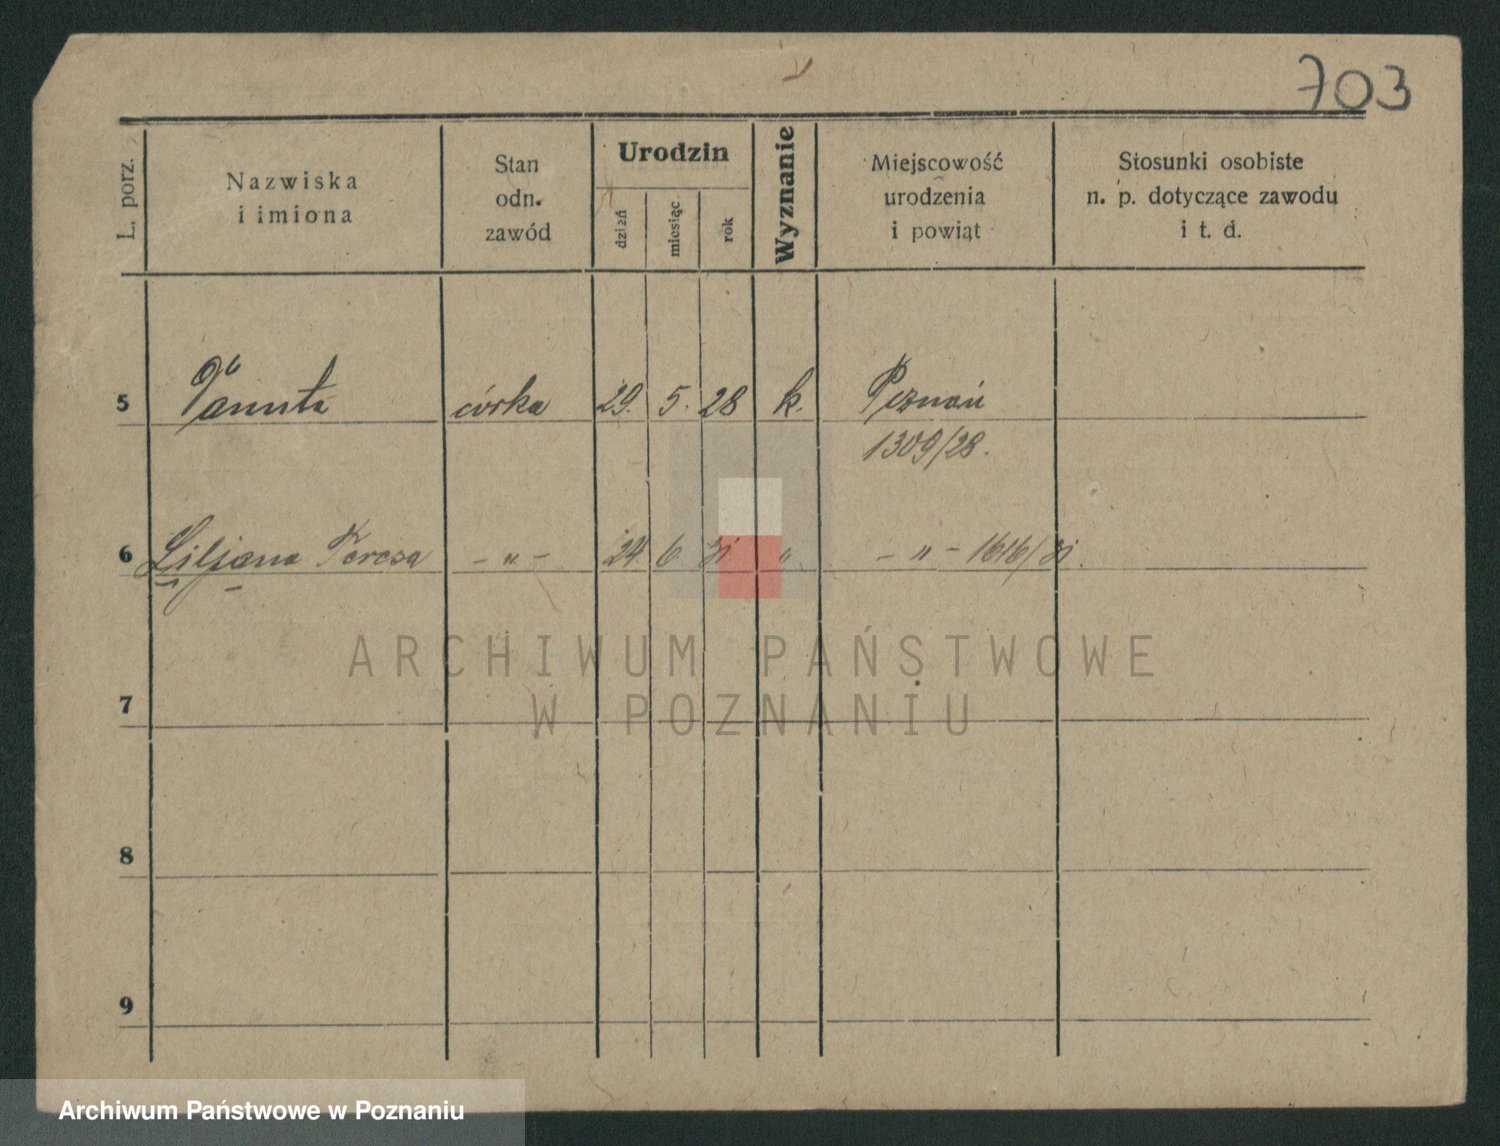 703
L. porz.
Nazwiska
i imiona
Stan
odn.
zawód
Urodzin
dzień
miesiąc
rok
Wyznanie
Miejscowość
urodzenia
i powiąt
Stosunki osobiste
n. p. dotyczące zawodu
i t. d.
5 Danuta córka 29. 5. 28 k. Poznań
1309/28.
6 Liljana Teresa – „ – 24. 6. 31. „ – „ – 1616/31.
7
8
9
ARCHIWUM PAŃSTWOWE
W POZNANIU
Archiwum Państwowe w Poznaniu